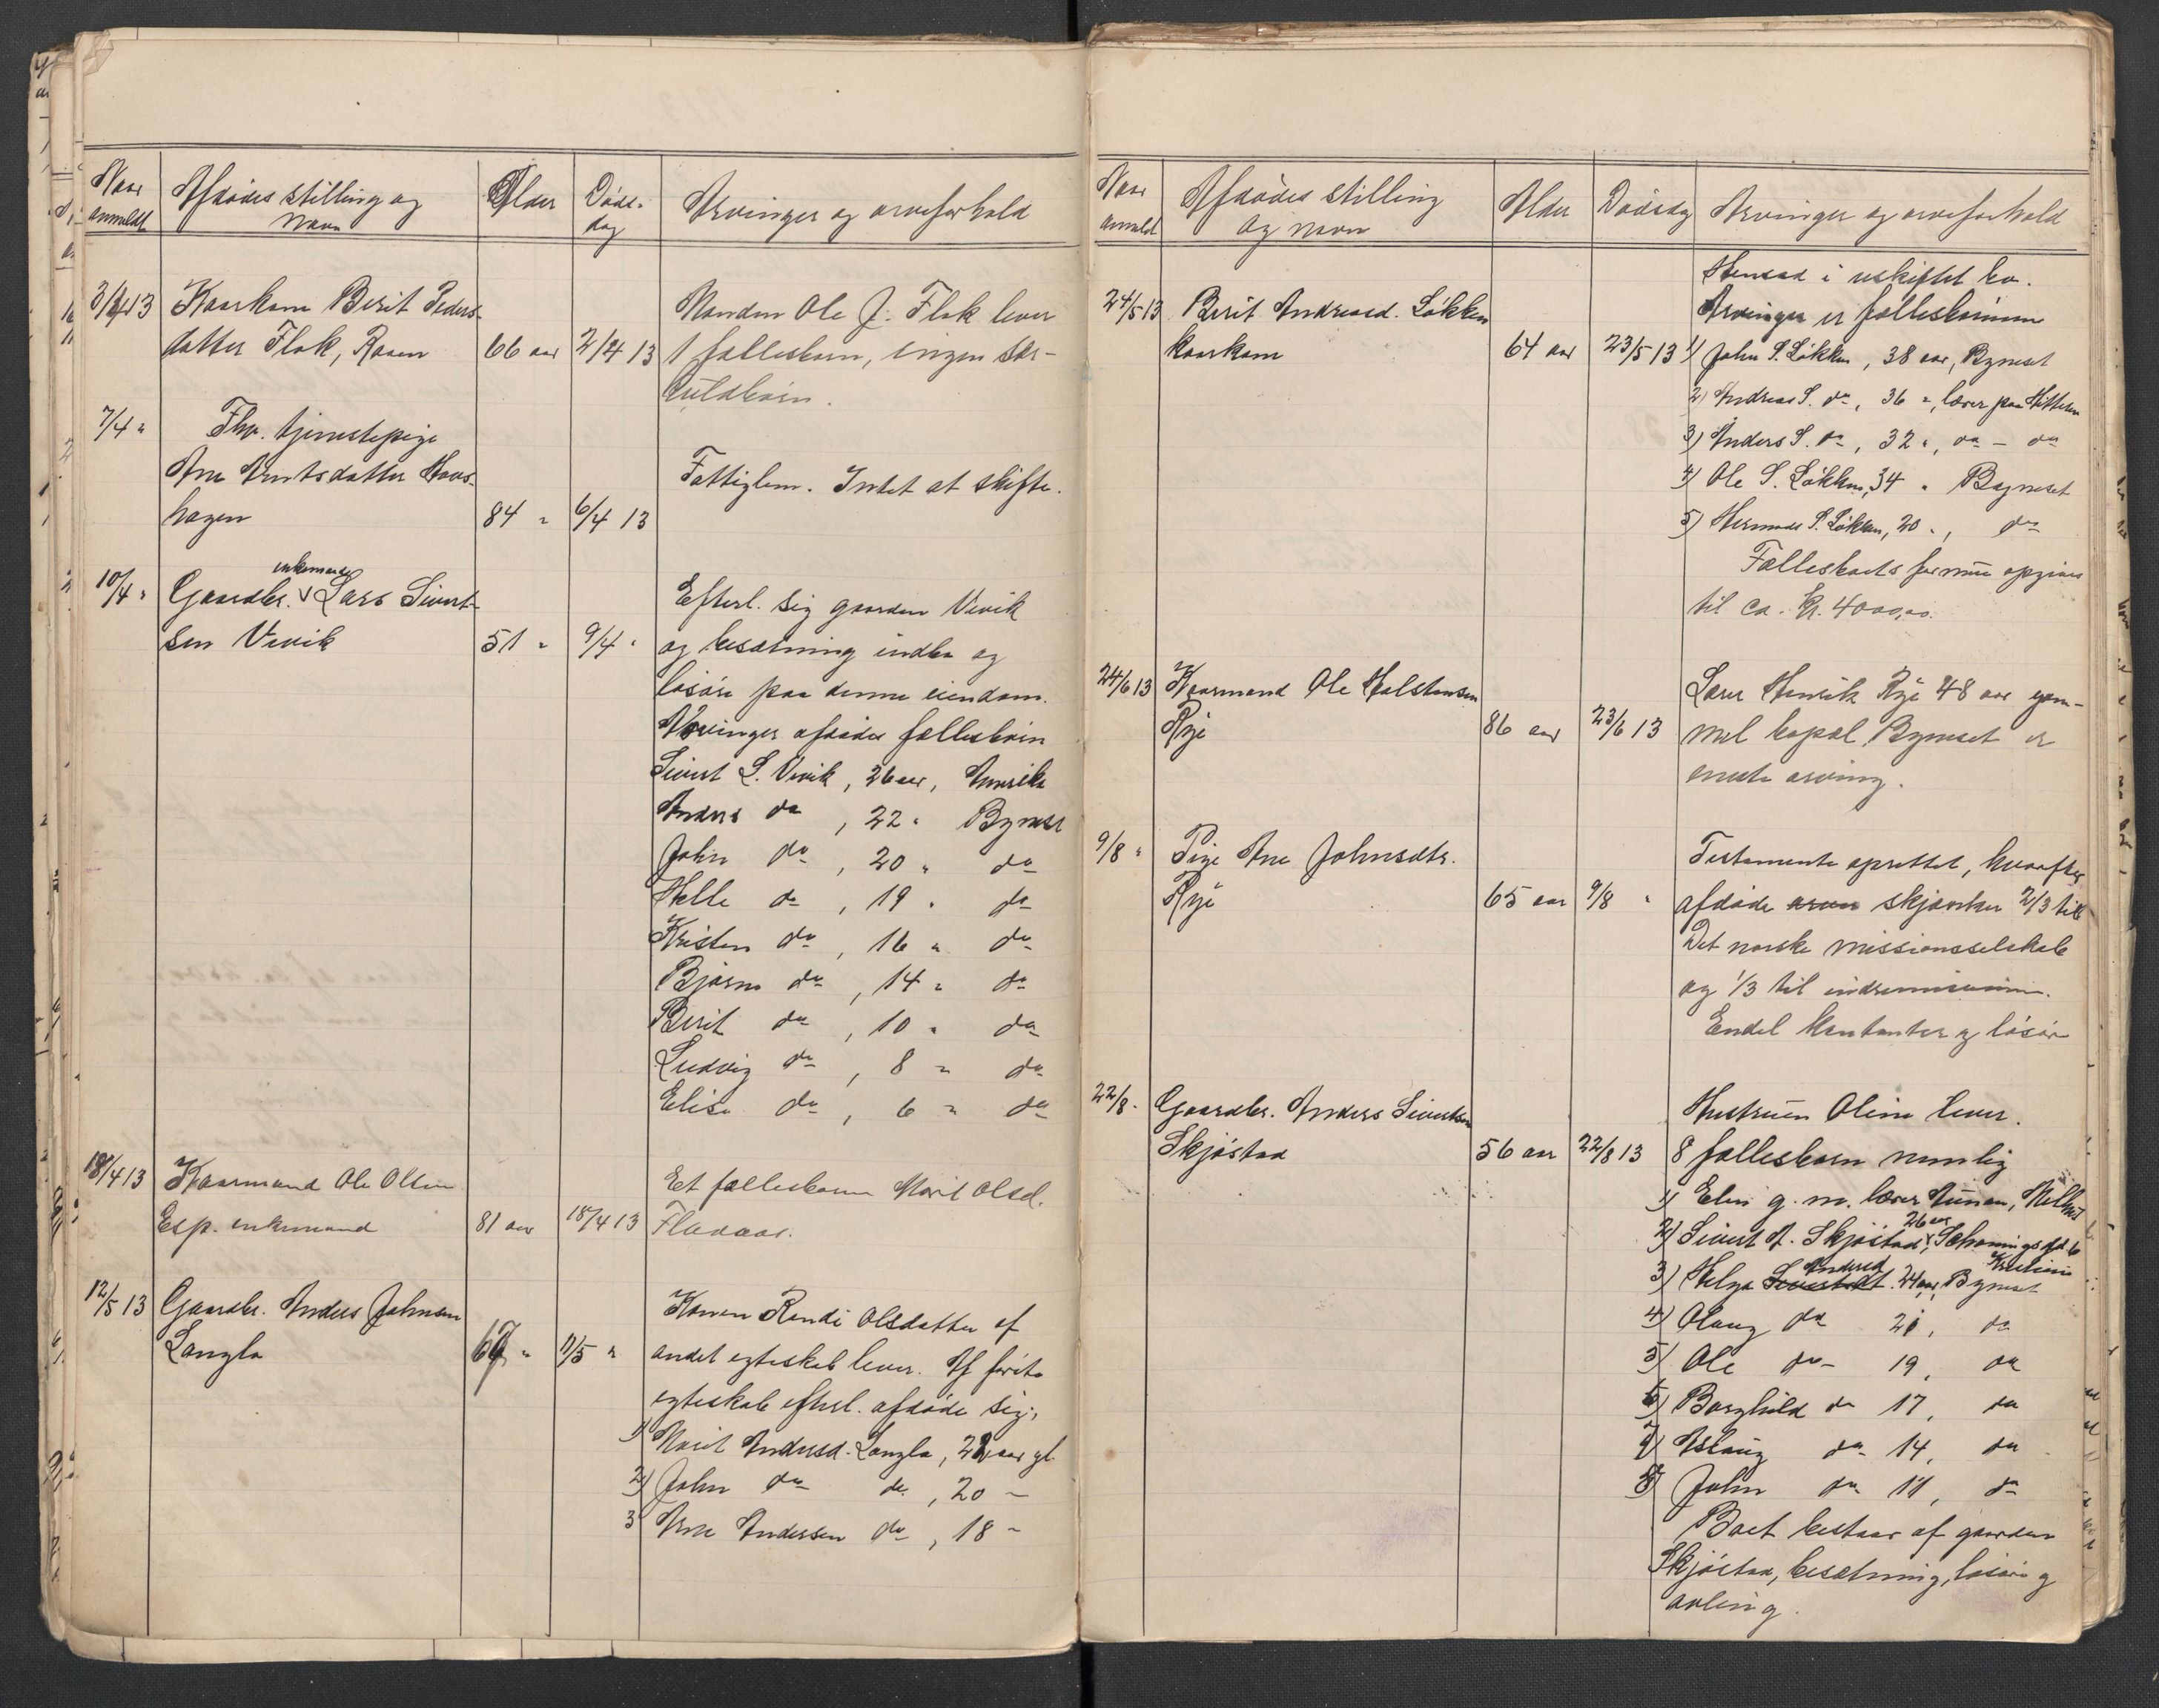 Naar
anmeldt
Afdødes stilling og
navn
Alder
Døds-
dag
Arvinger og arveforhold
3/4 13 Kaarkone Berit Peders-
datter Flok, Raaen 66 aar 2/4 13
Manden Ole J. Flok lever
1 fællesbarn, ingen sær-
kuldbørn.
7/4 " Fhv. tjenestepige
Ane Arntsdatter Hovs-
hagen 84 " 6/4 13
Fattiglem. Intet at skifte.
10/4 " Gaardbr. enkemand Lars Sivert-
sen Vevik 51 " 9/4 "
Efterl. sig gaarden Vevik
og besætning indbo og
løsøre paa denne eiendom.
Arvinger afdødes fællesbørn
Sivert L. Vevik, 26 aar, Amerika
Anders do , 22 " Bynest
John do , 20 " do
Helle do , 19 " do
Kristen do , 16 " do
Bjørn do , 14 " do
Berit do , 10 " do
Ludvig do , 8 " do
Elise do , 6 " do
18/4 13 Kaarmand Ole Olsen
Esp. enkemand 81 aar 18/4 13
Et fællesbarn Marit Olsd.
12/5 13 Gaardbr. Anders Johnsen
Langla 67 " 11/5 "
Konen Randi Olsdatter af
andet egteskab lever. Af første
egteskab efterl. afdøde sig:
1) Marit Andersd. Langla, 22 aar gl.
2) John do do, 20 "
3 Arne Andersen do , 18 "
Naar
anmeld
Afdødes stilling
og navn
Alder
Dødsdag
Arvinger og arveforhold
24/5 13 Berit Andreasd. Løkken
kaarkone 64 aar 23/5 13
Hensad i uskiftet bo.
Arvinger er fællesbørnene
1) John S. Løkken, 38 aar, Byneset
2) Andreas S. do, 36 ", lærer paa Hitteren
3) Anders S. do, 32 ", do - do
4) Ole S. Løkken, 34 " Byneset
5) S. Løkken, 20 ", do
Fællesboets formue opgives
til ca. kr. 4000,00.
24/6 13 Kaarmand Ole Halstensen
Rye 86 aar 23/6 13
Lærer Henrik Rye 48 aar gam-
mel bopæl Byneset er
eneste arving.
9/8 " Pige Ane Johnsdtr.
Rye 65 aar 9/8 "
Testamente oprettet, hvorefter
afdøde skjænker 2/3 til
Det norske missionsselskab
og 1/3 til indremissionen.
Endel kontanter og løsøre
22/8 " Gaardbr. Anders Sivertsen
Skjøstad 56 aar 22/8 13
Hustruen Oline lever.
8 fællesbørn nemlig
1) Elen g. m. lærer
2) Sivert A. Skjøstad, 26 aar, Schønings gd. 6
Kristiania
3) Helga Andersd. 24 aar, Byneset
4) Olaug do 21, do
5) Ole do 19, do
6) Borghild do 17, do
7) Aslaug do 14, do
8) John do 11, do
Boet bestaar af gaarden
Skjøstad, besætning, løsøre og
avling.